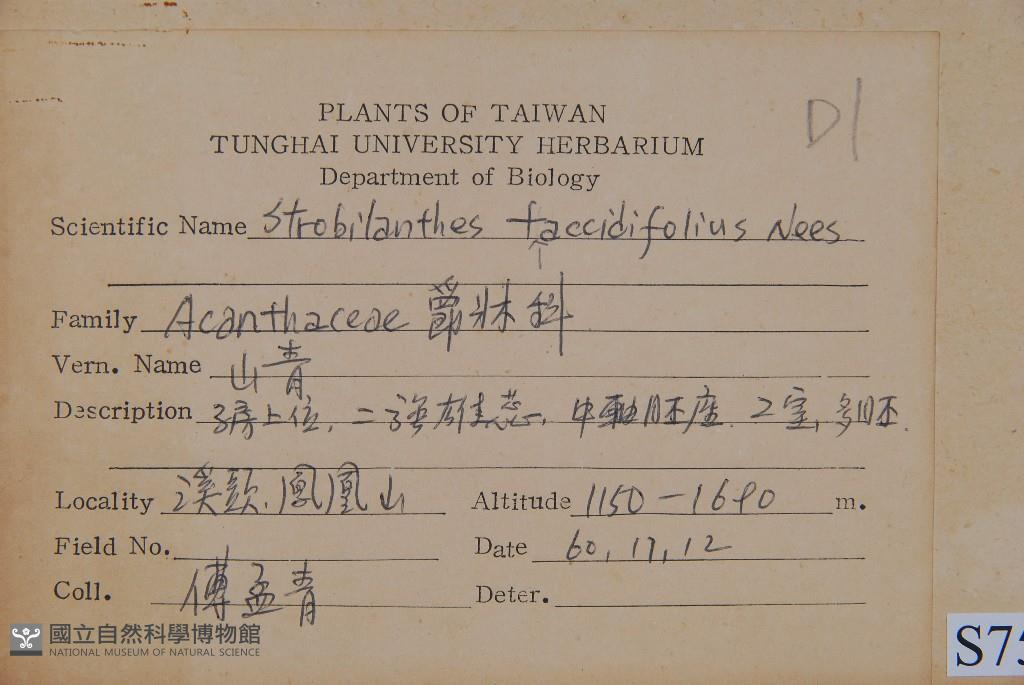 D1
PLANTS OF TAIWAN
TUNGHAI UNIVERSITY HERBARIUM
Department of Biology
Scientific Name Strobilanthes faccidifolius Nees
Family Acanthaceae 爵牀科
Vern. Name 山青
Description 子房上位, 二強雄蕊, 中軸胚座, 2室, 多胚.
Locality 溪頭, 鳳凰山 Altitude 1150-1690 m.
Field No. Date 60, 11, 12
Coll. 傅孟青 Deter.
國立自然科學博物館
NATIONAL MUSEUM OF NATURAL SCIENCE
S75